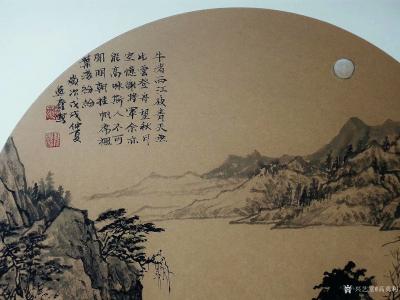 牛渚西江夜青天無
片雲登舟望秋月
空憶謝將軍余亦
能高咏斯人不可
聞明朝挂帆席楓
葉落紛紛
歲次戊戌仲夏